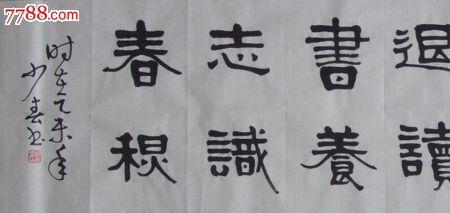 7788.com
退讀
書養
志識
春
时在乙未年
少春书